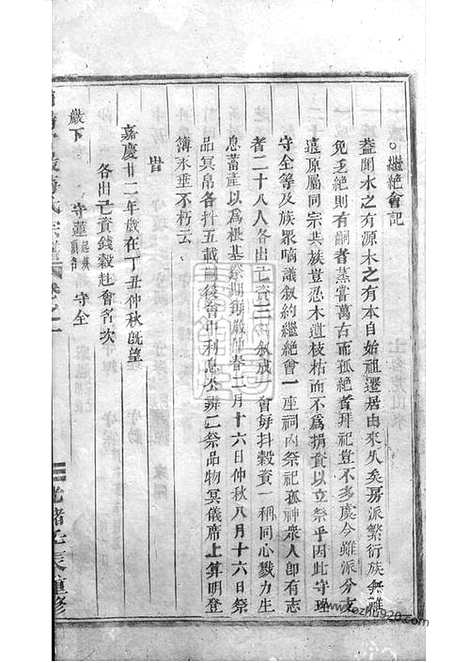 繼絶會記
蓋聞水之有源木之有本自始祖遷居由來久矣房派繁衍族無雖
免乏絶則有嗣者蒸嘗萬古而孤絶者拜祀豈不多虔今雖派分支
遠原屬同宗共族豈忍木道枝枯而不為捐資以立祭乎因此守理
守全等及族眾嘀議敘約繼絶會一座祠內祭祀孤神眾人即有志
者二十八人各出已資三 敘成 會毎抖穀資一稱同心戮力生
息蓄產以為根基 期 嚴仲春二月十六日仲秋八月十六日祭
品冥帛各抖五載 後會中利息公辦二祭品物冥儀席上算明登
簿永垂不朽云
旹
嘉慶廿二年歲在丁丑仲秋既望
各出已資錢穀赴會名次
嚴下 守蓮 守全
光緒壬辰重修
www.ezhu520.com